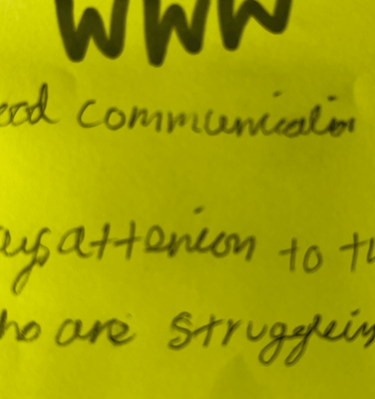 WWW
ood communication
ays attenion to th
ho are struggleing